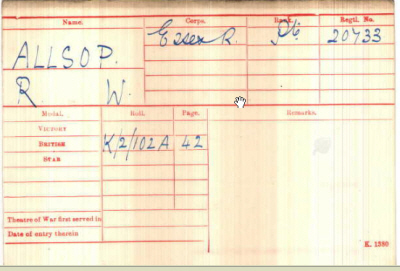 Name. Corps. Rank. Regtl. No.
ALLSOP. Essex R. Pte 20733
R W.
Medal. Roll. Page. Remarks.
VICTORY
BRITISH K/2/102A 42
STAR
Theatre of War first served in
Date of entry therein
K. 1380